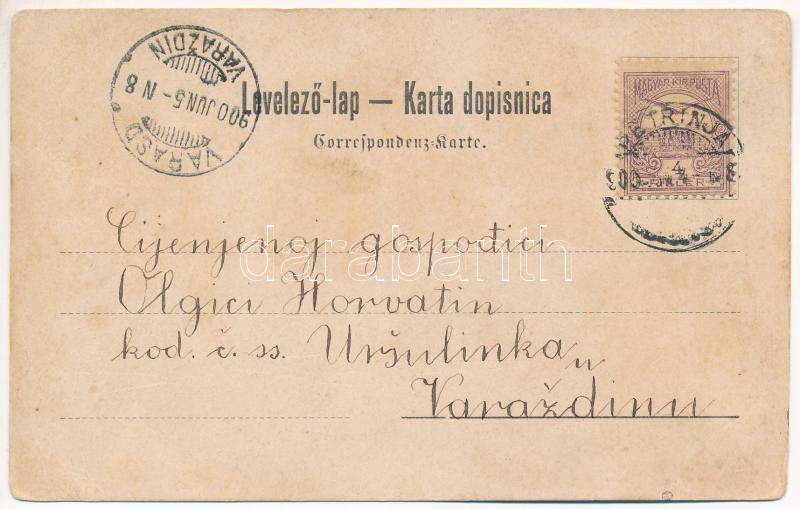 VARASD
900 JUN 5 - N 8
VARAŽDIN
Levelező-lap — Karta dopisnica
Correspondenz-Karte.
MAGYAR KIR. POSTA
PETRINJA
4
Cijenjenoj gospođici
Olgici Horvatin
kod. č. ss. Uršulinka u
Varaždinu
darabanth